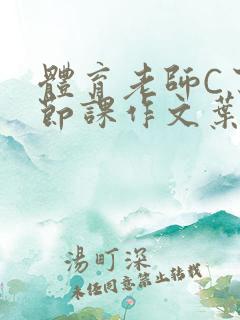 體育老師C了
節課作文葉
湯町深
未任同意禁止转载